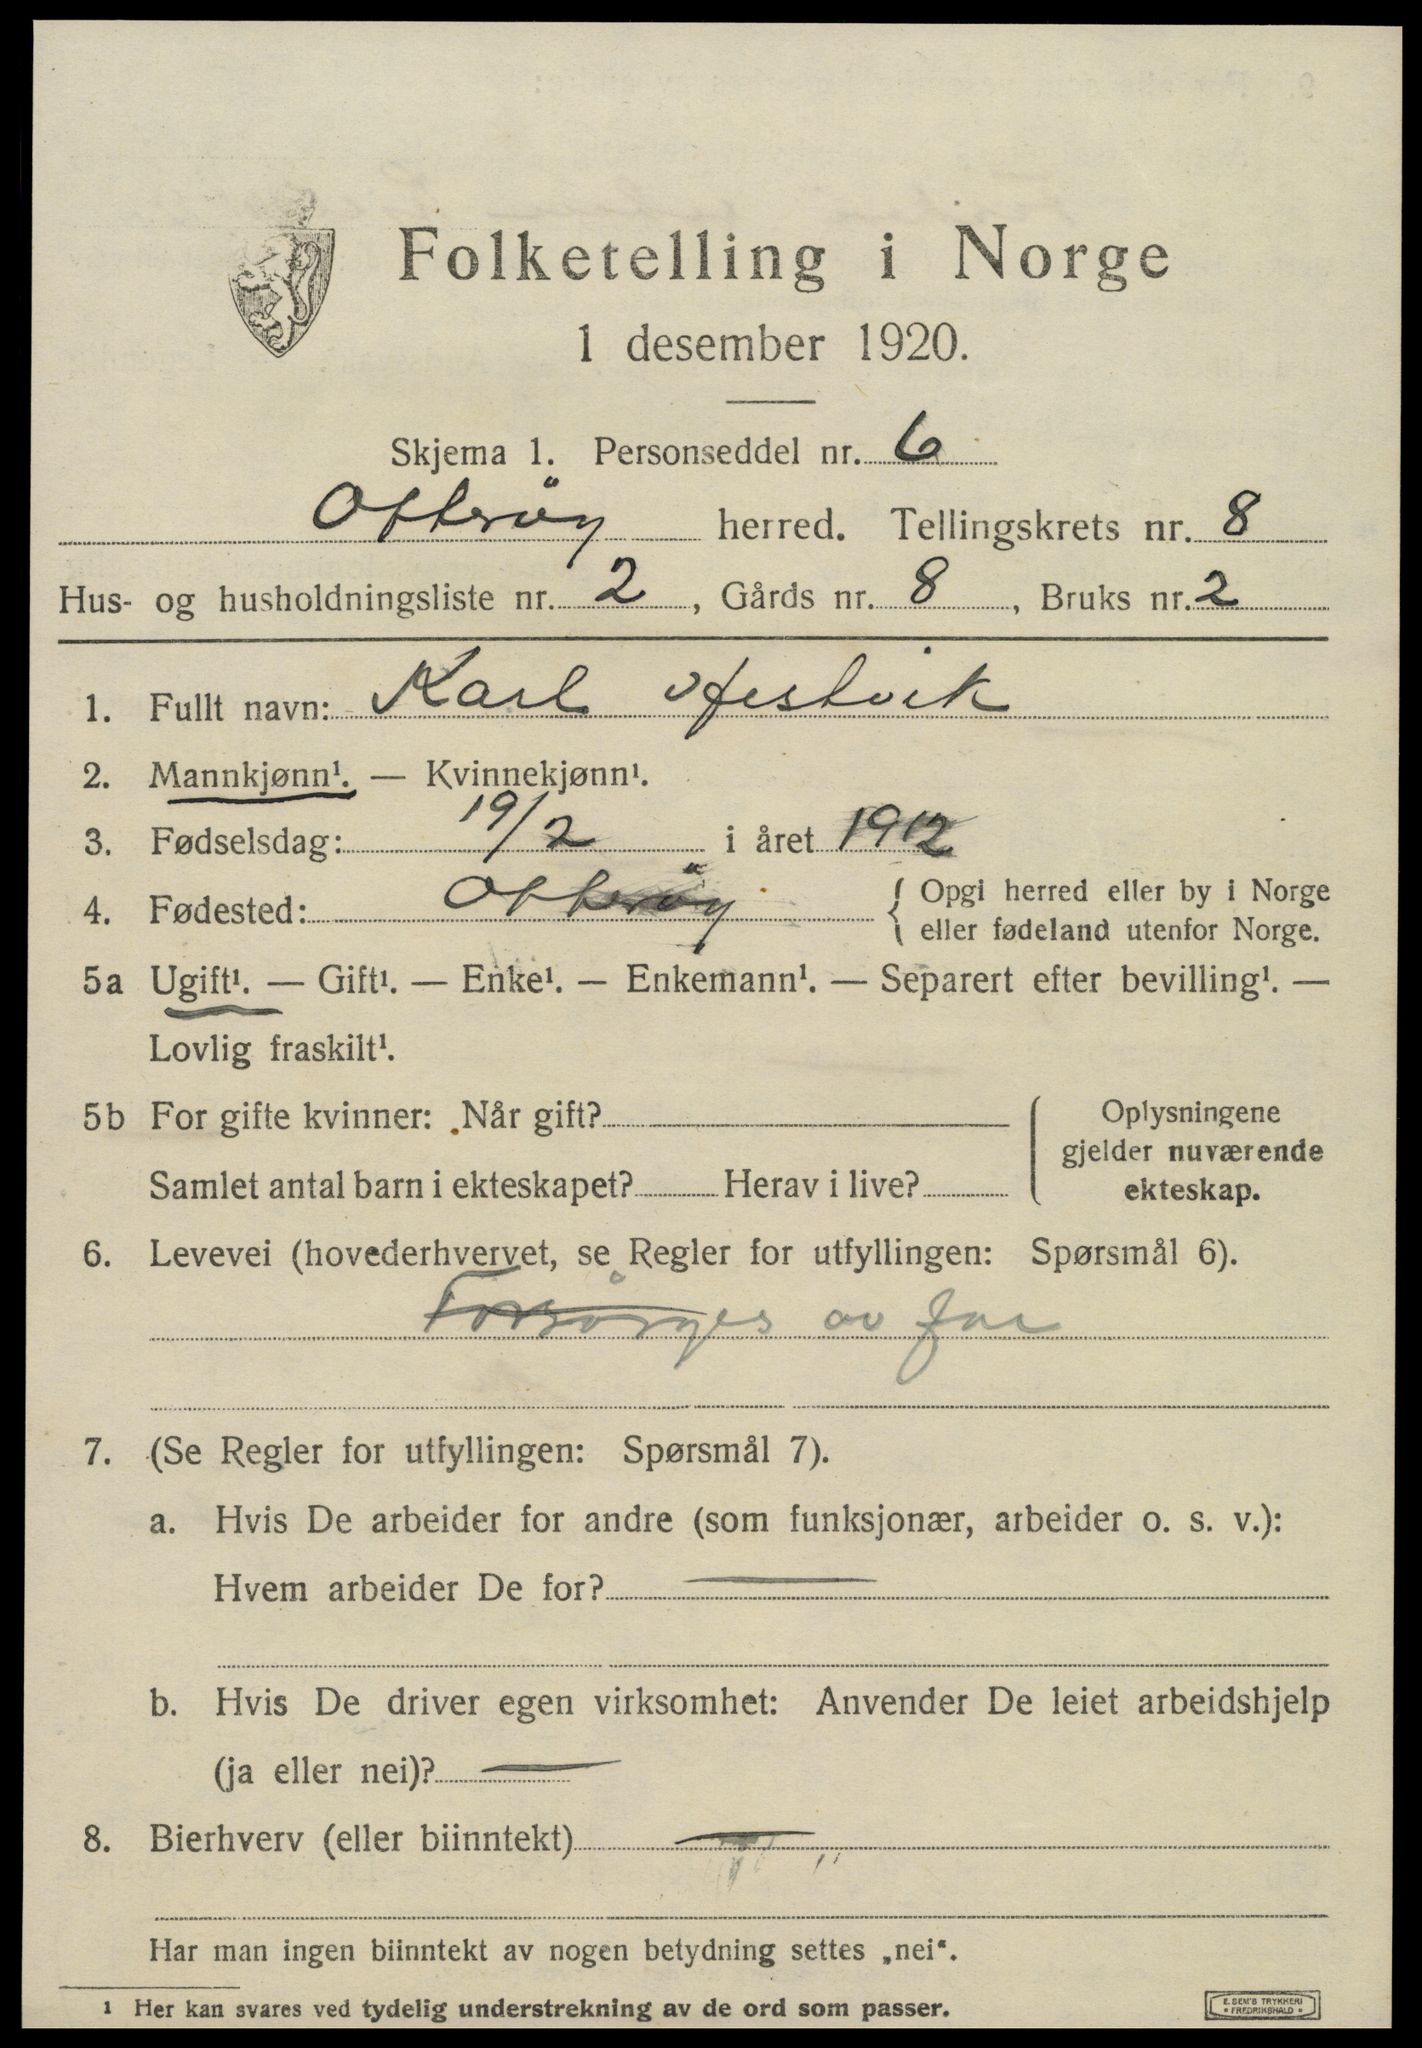 Folketelling i Norge
1 desember 1920.
Skjema 1. Personseddel nr. 6
Otteröy herred. Tellingskrets nr. 8
Hus- og husholdningsliste nr. 2, Gårds nr. 8, Bruks nr. 2
1. Fullt navn: Karl
2. Mannkjønn¹. — Kvinnekjønn¹.
3. Fødselsdag: 19/2 i året 1912
4. Fødested: Otteröy { Opgi herred eller by i Norge
eller fødeland utenfor Norge.
5a Ugift¹. — Gift¹. — Enke¹. — Enkemann¹. — Separert efter bevilling¹. —
Lovlig fraskilt¹.
5b For gifte kvinner: Når gift?
Samlet antal barn i ekteskapet? Herav i live?
Oplysningene
gjelder nuværende
ekteskap.
6. Levevei (hovederhvervet, se Regler for utfyllingen: Spørsmål 6).
Forsörges av far
7. (Se Regler for utfyllingen: Spørsmål 7).
a. Hvis De arbeider for andre (som funksjonær, arbeider o. s. v.):
Hvem arbeider De for? —
b. Hvis De driver egen virksomhet: Anvender De leiet arbeidshjelp
(ja eller nei)? —
8. Bierhverv (eller biinntekt) —
Har man ingen biinntekt av nogen betydning settes „nei“.
1 Her kan svares ved tydelig understrekning av de ord som passer.
E. SEM'S TRYKKERI
FREDRIKSHALD